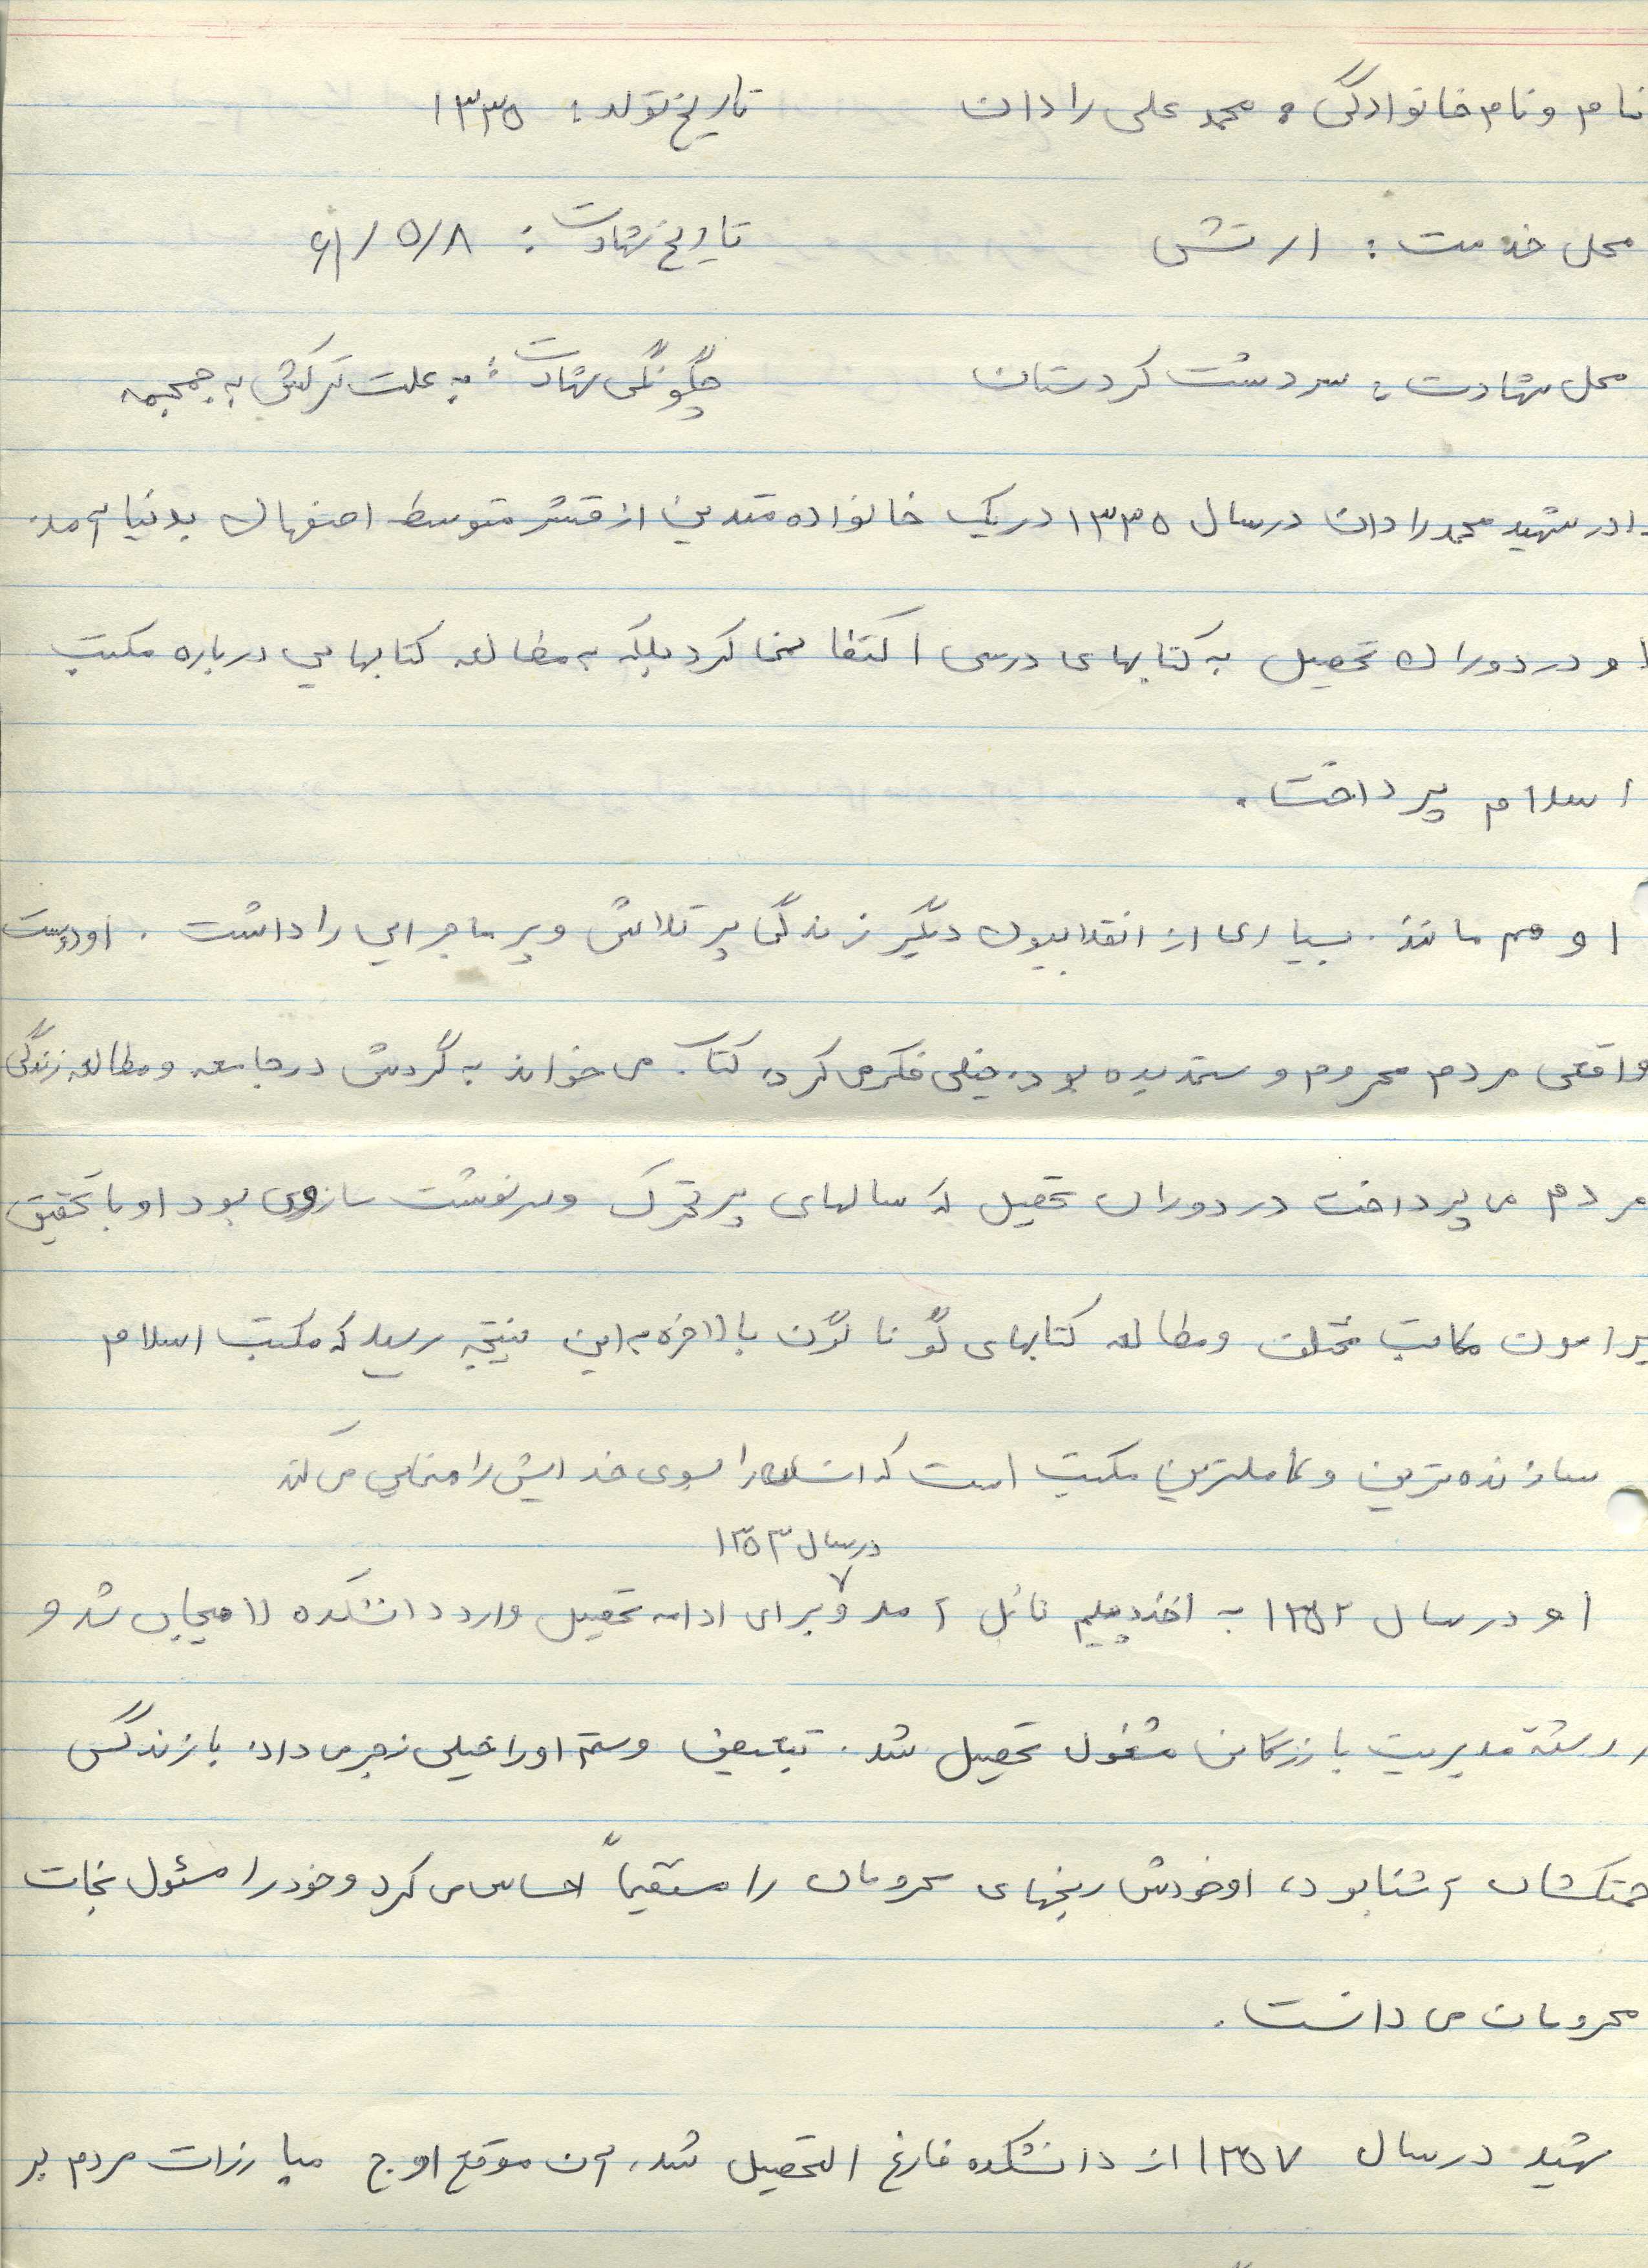 نام و نام خانوادگی : محمد علی رادان تاریخ تولد : ۱۳۳۵
محل خدمت : ارتش تاریخ شهادت : ۶۱/۵/۸
محل شهادت : سردشت کردستان چگونگی شهادت : به علت ترکش به جمجمه
برادر شهید محمد رادان در سال ۱۳۳۵ در یک خانواده متدین از قشر متوسط اصفهان بدنیا آمد.
او در دوران تحصیل به کتابهای درسی اکتفا نمی کرد بلکه به مطالعه کتابهایی درباره مکتب
اسلام پرداخت .
او هم مانند بسیاری از انقلابیون دیگر زندگی پر تلاش و پر ماجرایی را داشت . او دوست
واقعی مردم محروم و ستمدیده بود. خیلی فکر می کرد، کتاب می خواند به گردش در جامعه و مطالعه زندگی
مردم می پرداخت در دوران تحصیل که سالهای پر تحرک و سرنوشت ساز وی بود او با تحقیق
پیرامون مکاتب مختلف و مطالعه کتابهای گوناگون بالاخره به این نتیجه رسید که مکتب اسلام
سازنده ترین و کاملترین مکتب است که انسان را بسوی خدایش راهنمایی می کند
در سال ۱۳۵۳
او در سال ۱۳۵۲ به اخذ دیپلم نائل آمد و برای ادامه تحصیل وارد دانشکده لاهیجان شد و
در رشته مدیریت بازرگانی مشغول تحصیل شد. تبعیض و ستم او را خیلی زجر می داد. با زندگی
زحمتکشان آشنا بود، او خودش رنجهای محرومان را مستقیماً احساس می کرد و خود را مسئول نجات
محرومان می دانست .
شهید در سال ۱۳۵۷ از دانشکده فارغ التحصیل شد، آن موقع اوج مبارزات مردم بر